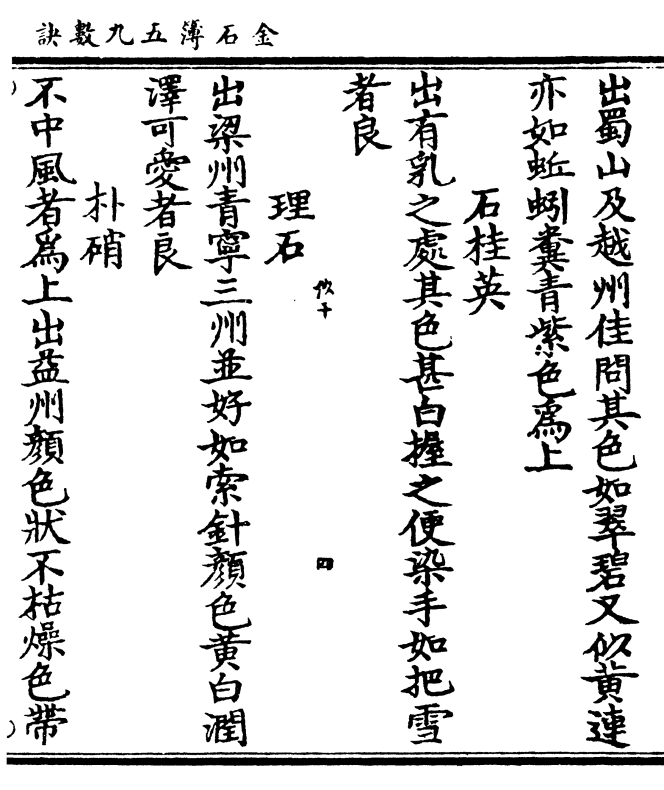 金石薄五九數訣
出蜀山及越州佳問其色如翠碧又似黃連
亦如蚯蚓糞青紫色爲上
石桂英
出有乳之處其色甚白握之便染手如把雪
者良
攸十
四
理石
出梁州青寧三州並好如索針顏色黃白潤
澤可愛者良
朴硝
不中風者爲上出益州顏色狀不枯燥色帶